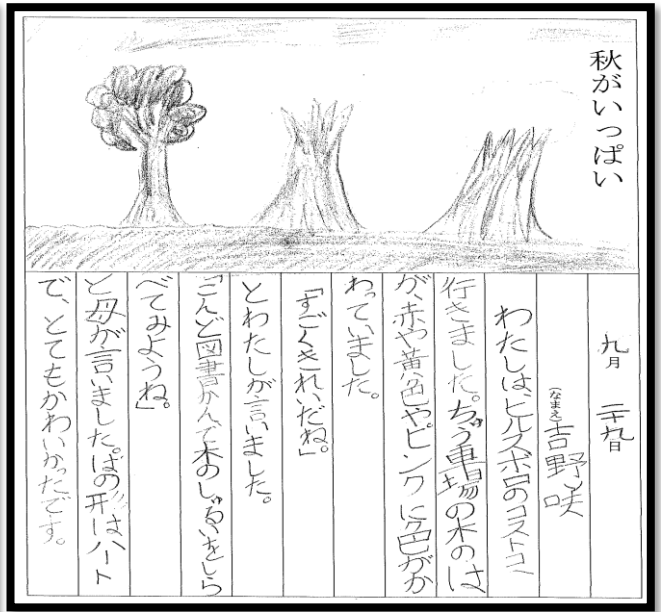 秋がいっぱい
九月 二十九日
(なまえ)吉野咲
わたしは、ヒルズボロのコストコへ
行きました。ちゅう車場の木のは
が、赤や黄色やピンクに色がか
わっていました。
「すごくきれいだね。」
とわたしが言いました。
「こんど図書かんで木のしゅるいをしら
べてみようね。」
と母が言いました。はの形はハート
で、とてもかわいかったです。